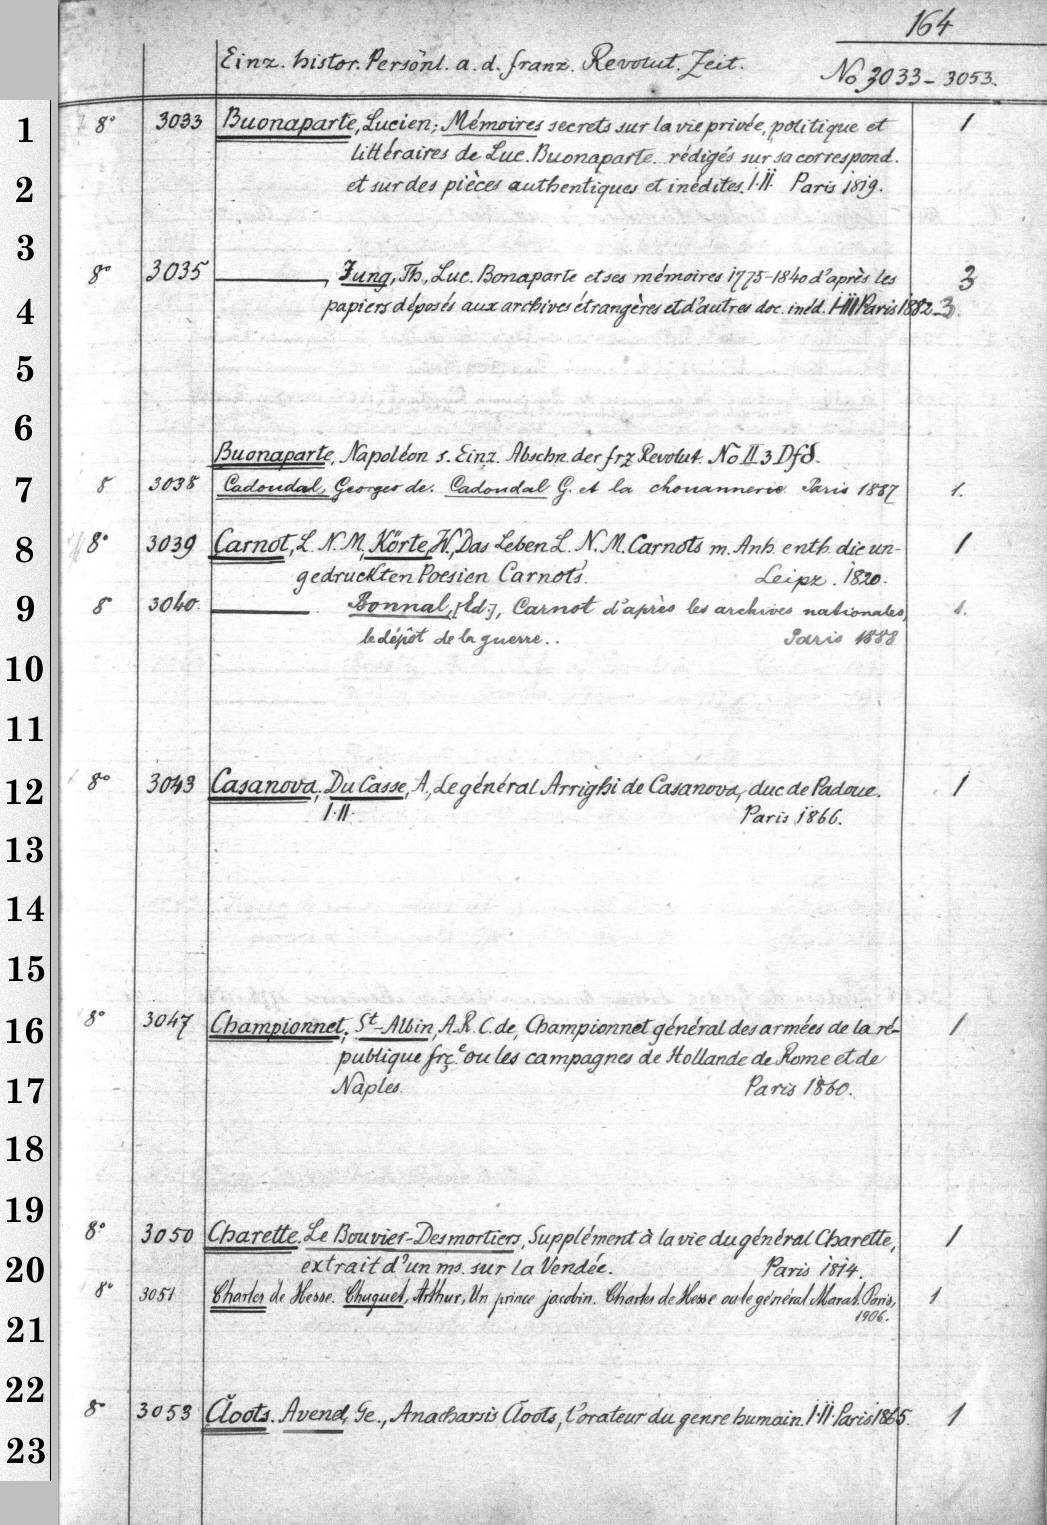 164
Einz. histor. Persönl. a. d. franz. Revolut. Zeit.
No 3033 - 3053.
1
8° 3033 Buonaparte, Lucien; Mémoires secrets sur la vie privée, politique et 1
littéraires de Luc. Buonaparte rédigés sur sa correspond.
2
et sur des pièces authentiques et inédites. I.II. Paris 1819.
3
8° 3035 ———, Jung, Th., Luc. Bonaparte et ses mémoires 1775-1840 d'après les 3
4
papiers déposés aux archives étrangères et d'autres doc. inéd. I-III Paris 1882-3.
5
6
Buonaparte, Napoléon s. Einz. Abschn. der frz Revolut. No II 3 Dfd.
7
8 3038 Cadoudal, Georges de. Cadoudal G. et la chouannerie Paris 1887 1.
8
8° 3039 Carnot, L. N. M, Körte, W., Das Leben L. N. M. Carnots m. Anh. enth. die un- 1
gedruckten Poesien Carnots. Leipz. 1820.
9
8 3040. ——— Bonnal, [Ed.], Carnot d'après les archives nationales, 1.
le dépôt de la guerre.. Paris 1888
10
11
12
8° 3043 Casanova, Du Casse, A., Le général Arrighi de Casanova, duc de Padoue. 1
I.II. Paris 1866.
13
14
15
16
8° 3047 Championnet, St-Albin, A. R. C. de, Championnet général des armées de la ré- 1
publique frçe ou les campagnes de Hollande de Rome et de
17
Naples. Paris 1860.
18
19
8° 3050 Charette. Le Bouvier-Desmortiers, Supplément à la vie du général Charette, 1
20
extrait d'un ms. sur la Vendée. Paris 1814.
8° 3051 Charles de Hesse. Chuquet, Arthur, Un prince jacobin. Charles de Hesse ou le général Marat. Paris, 1
1906.
21
22
8° 3053 Cloots. Avenel, Ge., Anacharsis Cloots, l'orateur du genre humain. I.II. Paris 1865. 1
23